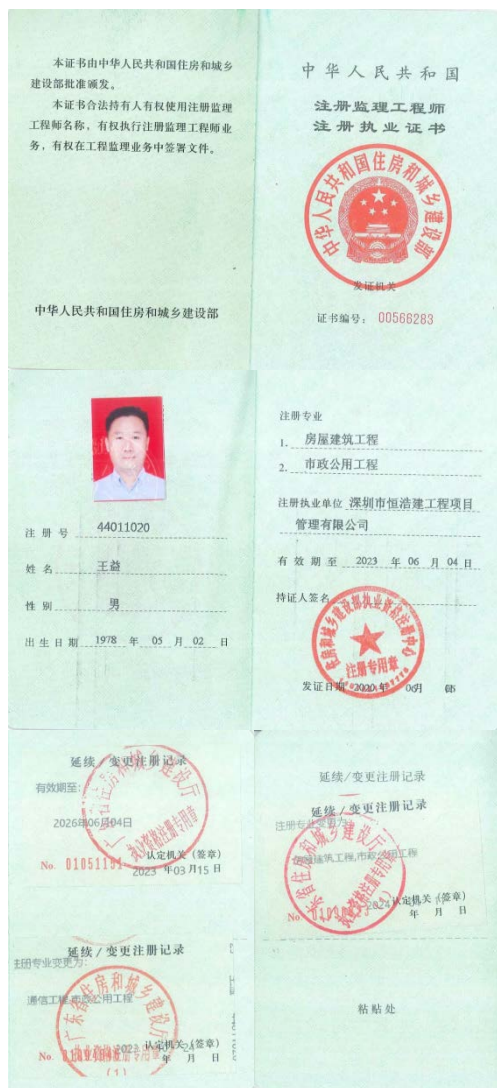 本证书由中华人民共和国住房和城乡
建设部批准颁发。
本证书合法持有人有权使用注册监理
工程师名称，有权执行注册监理工程师业
务，有权在工程监理业务中签署文件。
中华人民共和国住房和城乡建设部
中华人民共和国
注册监理工程师
注册执业证书
中华人民共和国住房和城乡建设部
发证机关
证书编号：00566283
注册号 44011020
姓名 王益
性别 男
出生日期 1978 年 05 月 02 日
注册专业
1. 房屋建筑工程
2. 市政公用工程
注册执业单位 深圳市恒浩建工程项目
管理有限公司
有效期至 2023 年 06 月 04 日
持证人签名
住房和城乡建设部执业资格注册中心
注册专用章
发证日期 2020 年 06月 05
延续/变更注册记录
有效期至：
2026年06月04日
广东省住房和城乡建设厅
执业资格注册专用章
认定机关（签章）
No. 01051191
2023 年 03 月 15 日
延续/变更注册记录
注册专业变更为：
通信工程,市政公用工程
广东省住房和城乡建设厅
认定机关（签章）
No.
24
年 月 日
(1)
延续/变更注册记录
延续/变更注册记录
注册专业变更为：
建筑工程,市政公用工程
东省住房和城乡建设厅
认定机关（签章）
No.
2024
年 月 日
粘贴处